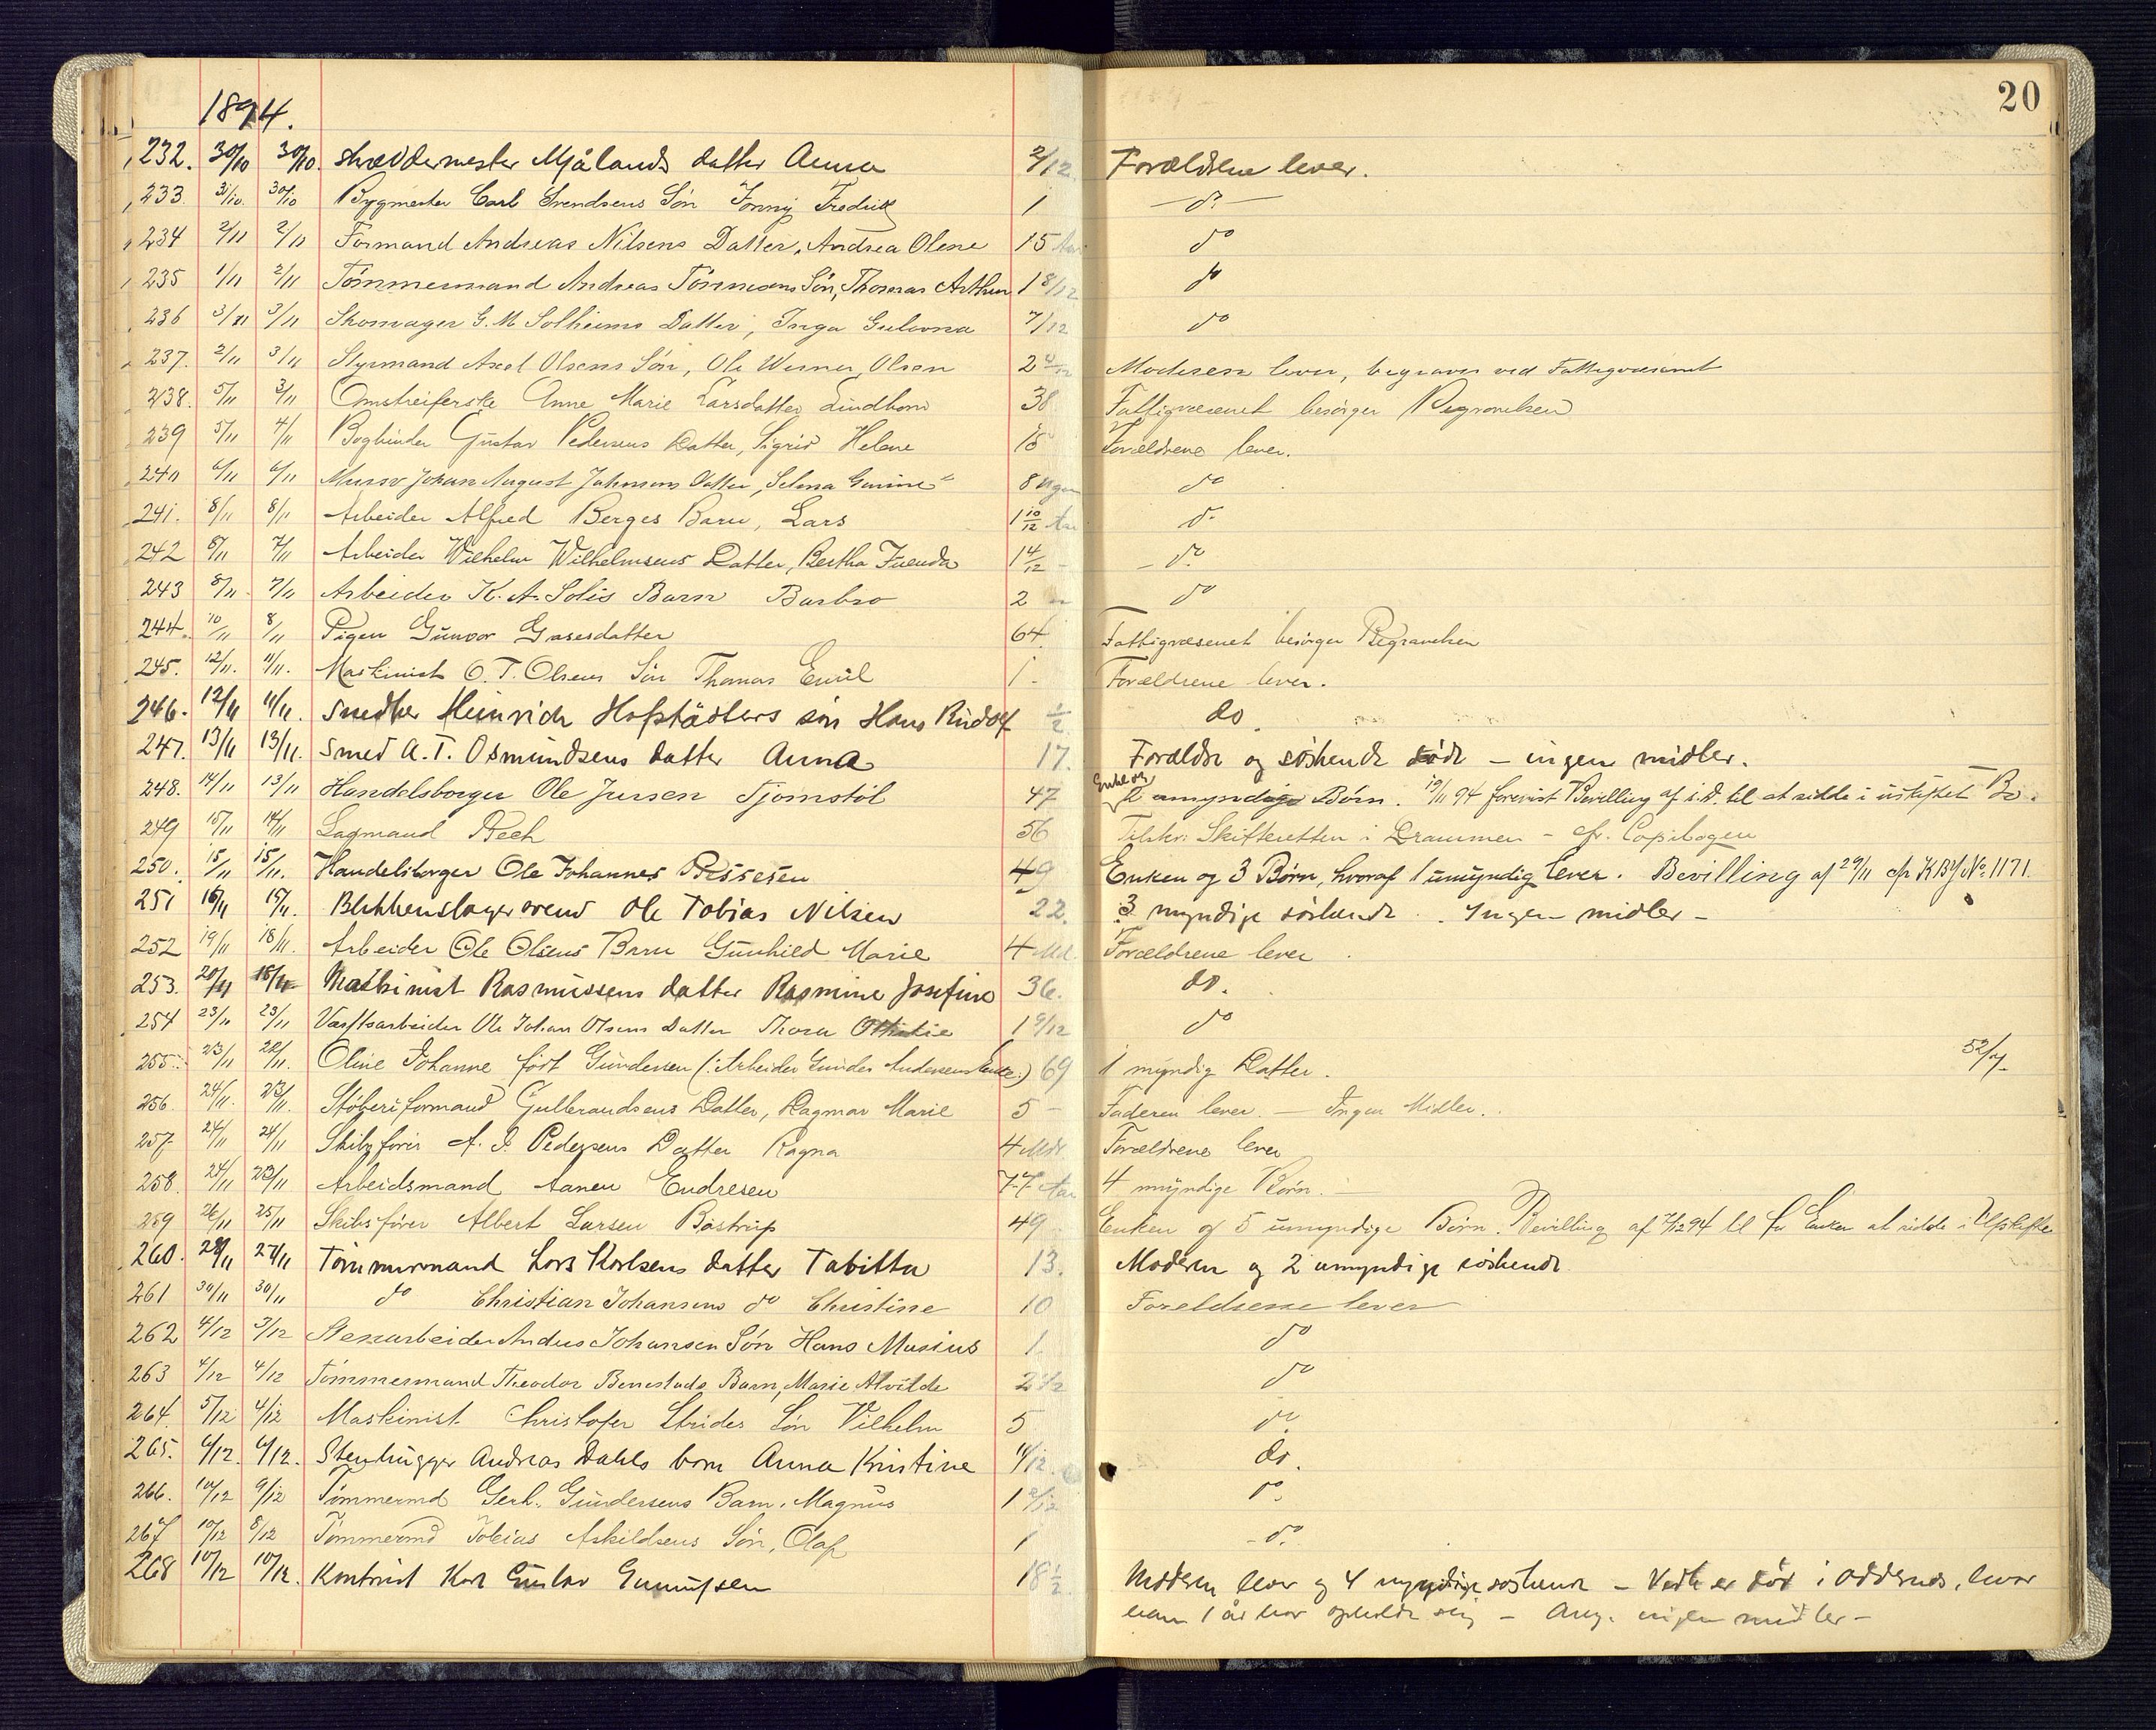 20
1894.
232. 30/10 30/10. skræddermester Mjålands datter Anna 2/12 Forældrene lever.
233. 31/10. 30/10 Bygmester Carl Svendsens Søn Fredrik 1 do
234 2/11 2/11 Formand Andreas Nilsens Datter, Andrea Olene 15 Aar do
235 1/11 2/11 Tömmermand Andreas Tönnesens Sön, Thomas Arthur 1 8/12 do
236 3/11 3/11 Skomager G. M. Solheims Datter, Inga Gulovna 7/12 do
237. 2/11 3/11 Styrmand Axel Olsens Sön, Ole Werner Olsen 2 Moderen lever, begraves ved Fattigvæsenet
238. 5/11 3/11 Omstreiferske Anne Marie Larsdatter Lindbom 38 Fattigvæsenet besörger Begravelsen
239 5/11 4/11 Bogbinder Gustav Pedersens Datter, Sigrid Helene 15 Forældrene lever.
240 6/11 6/11 Murer Johan August Johnsens Datter, Selma 8 Uger do
241. 8/11 8/11 Arbeider Alfred Berges Barn, Lars 1 10/12 Aar do
242 8/11 7/11 Arbeider Wilhelm Wilhelmsens Datter, Bertha 1 4/12 do
243 8/11 7/11 Arbeider K. A. Solis Barn Barbro 2 do
244. 10/11 8/11 Pigen Gunvor Gasesdatter 64 Fattigvæsenet besörger Begravelsen
245. 12/11. 11/11. Maskinist O. T. Olsens Sön Thomas Emil 1 - Forældrene lever.
246. 12/11 11/11. Snedker Heinrich Hofstädters sön Hans Rudolf 1/2 do
247. 13/11 13/11. Smed A. T. Osmundsens datter Anna 17. Forældre og söskende döde - ingen midler.
248. 14/11 13/11 Handelsborger Ole Jensen Tjomstöl 47 Enke og 2 umyndige Börn. 19/11 94 forevist Bevilling af s. D. til at sidde i uskiftet Bo.
249 15/11 14/11 Lagmand Bech 56 Tilskr. Skifteretten i Drammen - cfr. Copibogen
250. 15/11 15/11. Handelsborger Ole Johannes Bessesen 49 Enken og 3 Börn, hvoraf 1 umyndig lever. Bevilling af 29/11 cfr KBf No 1171.
251 16/11 15/11. Blikkenslagersvend Ole Tobias Nilsen 22. 3 myndige söskende. Ingen midler -
252 19/11 18/11. Arbeider Ole Olsens Barn Gunhild Marie 4 Md. Forældrene lever
253. 20/11 18/11 Maskinist Rasmussens datter Rasmine Josefine 36. do.
254 23/11 23/11 Værftsarbeider Ole Johan Olsens Datter Thora Ottilie 1 9/12 do
255. 23/11 22/11. Oline Johanne födt Gundersen (: Arbeider Gunder Andersens Enke :) 69 1 myndig Datter. 52/94.
256. 24/11. 23/11. Stöberiformand Gulbrandsens Datter, Dagmar Marie 5 - Faderen lever. - Ingen Midler.
257. 24/11 24/11 Skibsförer A. I. Pedersens Datter Ragna 4 Mdr Forældrene lever
258. 24/11 23/11 Arbeidsmand Aanen Endresen 77 Aar 4 myndige Börn. -
259 26/11 25/11 Skibsförer Albert Larsen Bastrup 49 Enken og 5 umyndige Börn. Bevilling af 7/12 94 til for Enken at sidde i Uskifte
260. 28/11 27/11 Tömmermand Lars Karlsens datter Tabitta 13. Moderen og 2 umyndige söskende
261 30/11 30/11 do Christian Johansens do Christine 10 Foreldrene lever
262 4/12 3/12 Stenarbeider Anders Johansen Sön Hans Musius 1. do
263 4/12 4/12 Tömmermand Theodor Benestads Barn, Marie Alvilde 2 1/2 do
264. 5/12 4/12 Maskinist Christofer Strides Sön Vilhelm 5 do
265. 6/12. 6/12. Stenhugger Andreas Dahls barn Anna Kristine 11/12 do.
266. 10/12 9/12 Tömmermd Gerh. Gundersens Barn, Magnus 1 2/12 do
267 10/12 8/12 Tömmermd Tobias Askildsens Sön, Olaf 1 do
268 10/12 10/12. Kontorist Karl Gustav Gunnufsen 18 1/2 Moderen lever og 4 myndige söskende - Vedk er död i Oddernes, hvor
han 1 år har opholdt sig - Ang. ingen midler -